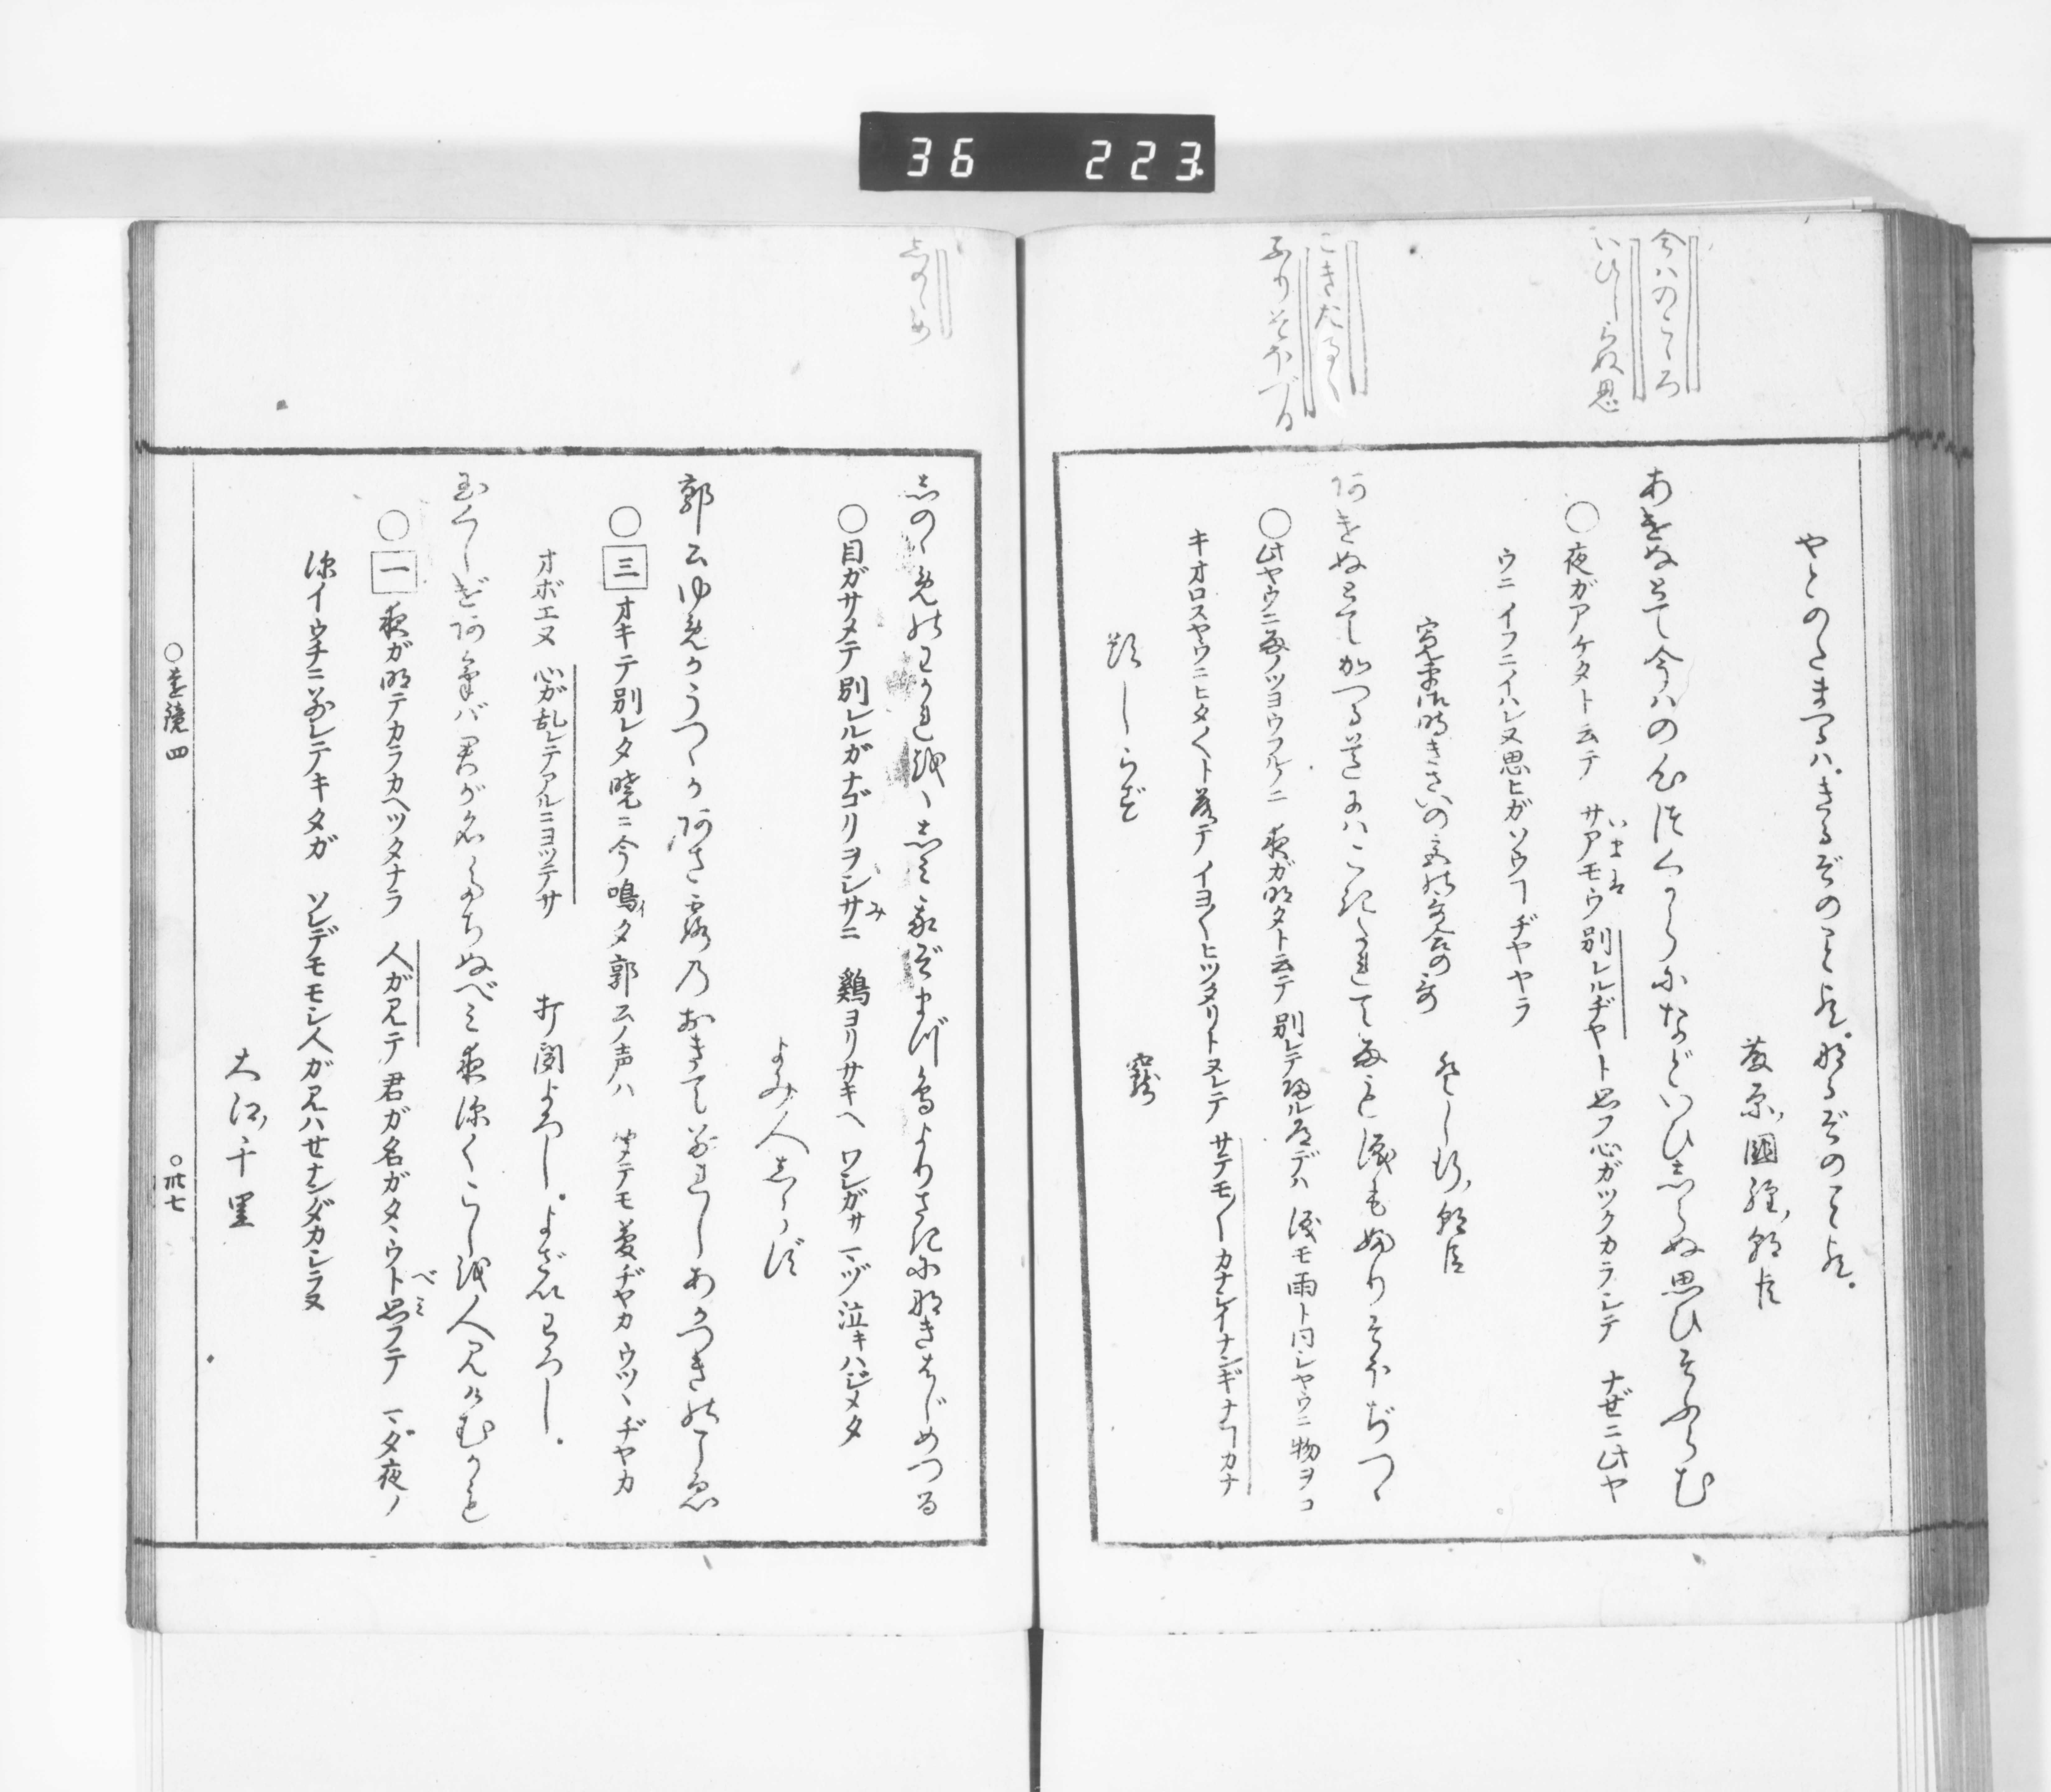 36 223
今ハのこゝろ
いひしらぬ思
こきたるゝ
ふりそほづる
やとのたまへるハ。きるぞのこと也。なるぞのこと也。
藤原ノ國經ノ朝臣
あけぬとて今ハの心つくからになどいひしらぬ思ひそふらむ
○夜ガアケタト云テ サアモウ別レルヂヤト思フ心ガツクカラシテ ナゼニ此ヤ
ウニ イフニイハレヌ思ヒガソウフヿヂヤヤラ
寛平御時きさいの宮の哥合の哥 としゆきノ朝臣
あけぬとてかへる道にハこきたれて雨も涙もふりそほぢつゝ
○此ヤウニ雨ノツヨウフルノニ 夜ガ明タト云テ 別レテ帰ル道デハ 涙モ雨ト同シヤウニ 物ヲコ
キオロスヤウニヒタ〱ト落テ イヨ〱ヒツタリトヌレテ サテモ〱カナシイナンギナヿカナ
題しらず 寵
しのゝめ
しのゝめのわかれををしみ我ぞまづ鳥よりさきになきはじめつる
○目ガサメテ別レルガナゴリヲシサニ 鷄ヨリサキヘ ワシガサ マヅ泣キハジメタ
よみ人しらず
郭公ゆめかうつゝかあさ露のおきて別れしあかつきのこゑ
○三 オキテ別レタ曉ニ今鳴イタ郭公ノ声ハ 夢ヂヤカ ウツヽヂヤカ
オボエヌ 心ガ乱レテアルニヨツテサ 打聞よろし。よざいわろし。
玉くしげあけバ君が名たちぬべみ夜深くこしを人見けむかも
○一 夜ガ明テカラカヘツタナラ 人ガ見テ 君ガ名ガタヽウト思フテ マダ夜ノ
深イウチニ別レテキタガ ソレデモモシ人ガ見ハセナンダカシラヌ
大江ノ千里
○遠鏡四
○卅七